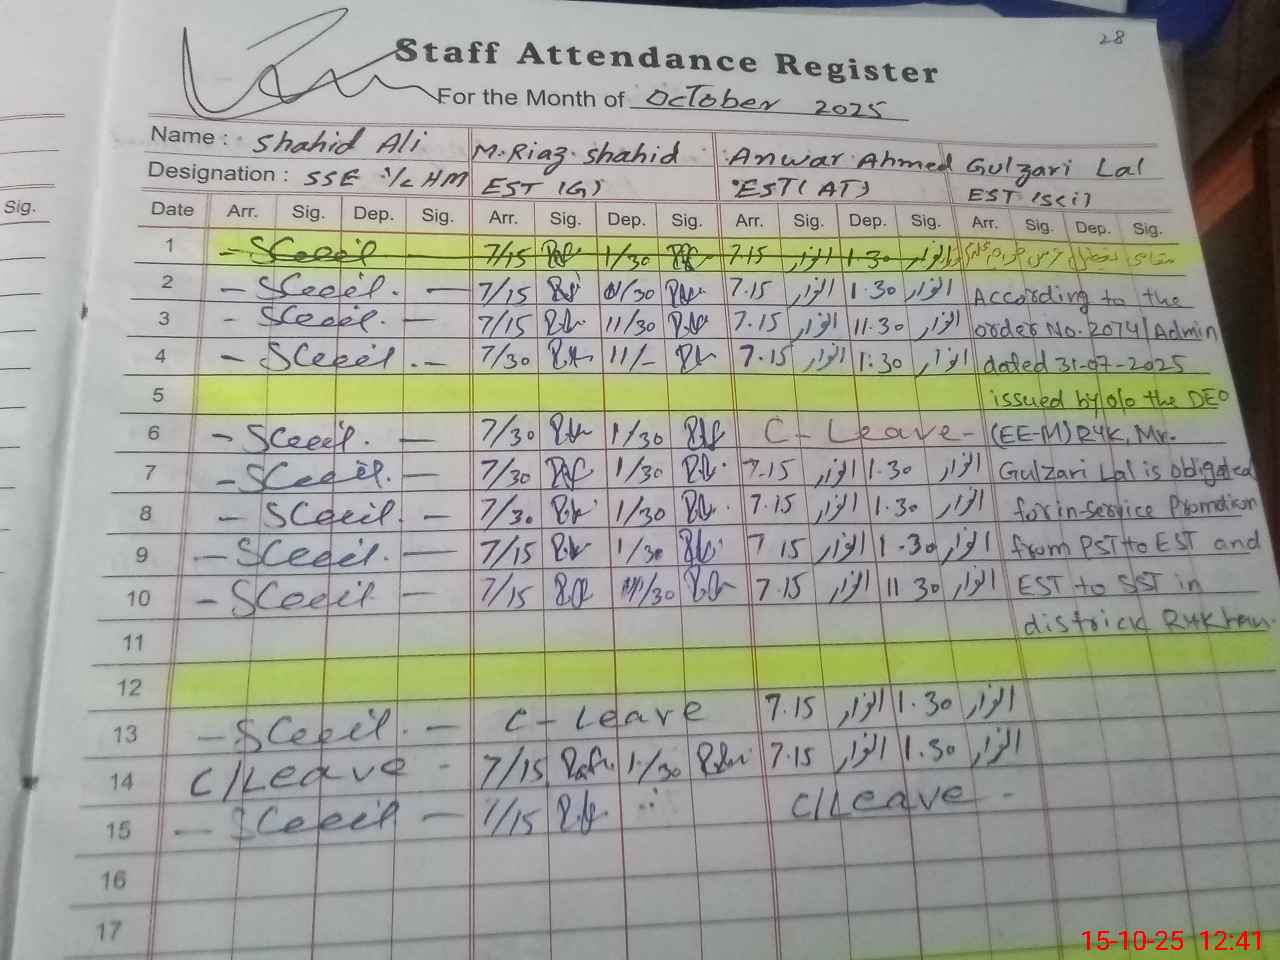 28
Staff Attendance Register
For the Month of October 2025
Name : Shahid Ali M. Riaz Shahid Anwar Ahmed Gulzari Lal
Designation : SSE i/c HM EST (G) EST (AT) EST (Sci)
Sig.
Date Arr. Sig. Dep. Sig. Arr. Sig. Dep. Sig. Arr. Sig. Dep. Sig. Arr. Sig. Dep. Sig.
1 7/15 1/30 7.15 انوار 1.30 انوار
2 7/15 1/30 7.15 انوار 1.30 انوار According to the
3 7/15 11/30 7.15 انوار 11.30 انوار order No. 2074/Admin
4 7/30 11/- 7.15 انوار 1.30 انوار dated 31-07-2025
5 issued by o/o the DEO
6 7/30 1/30 C - Leave - (EE-M) RYK, Mr.
7 7/30 1/30 7.15 انوار 1.30 انوار Gulzari Lal is obligated
8 7/30 1/30 7.15 انوار 1.30 انوار for in-service Promotion
9 7/15 1/30 7.15 انوار 1.30 انوار from PST to EST and
10 7/15 11/30 7.15 انوار 11.30 انوار EST to SST in
11 districk RYKhan.
12
13 C - Leave 7.15 انوار 1.30 انوار
14 C/Leave - 7/15 1/30 7.15 انوار 1.30 انوار
15 7/15 C/Leave -
16
17
15-10-25 12:41